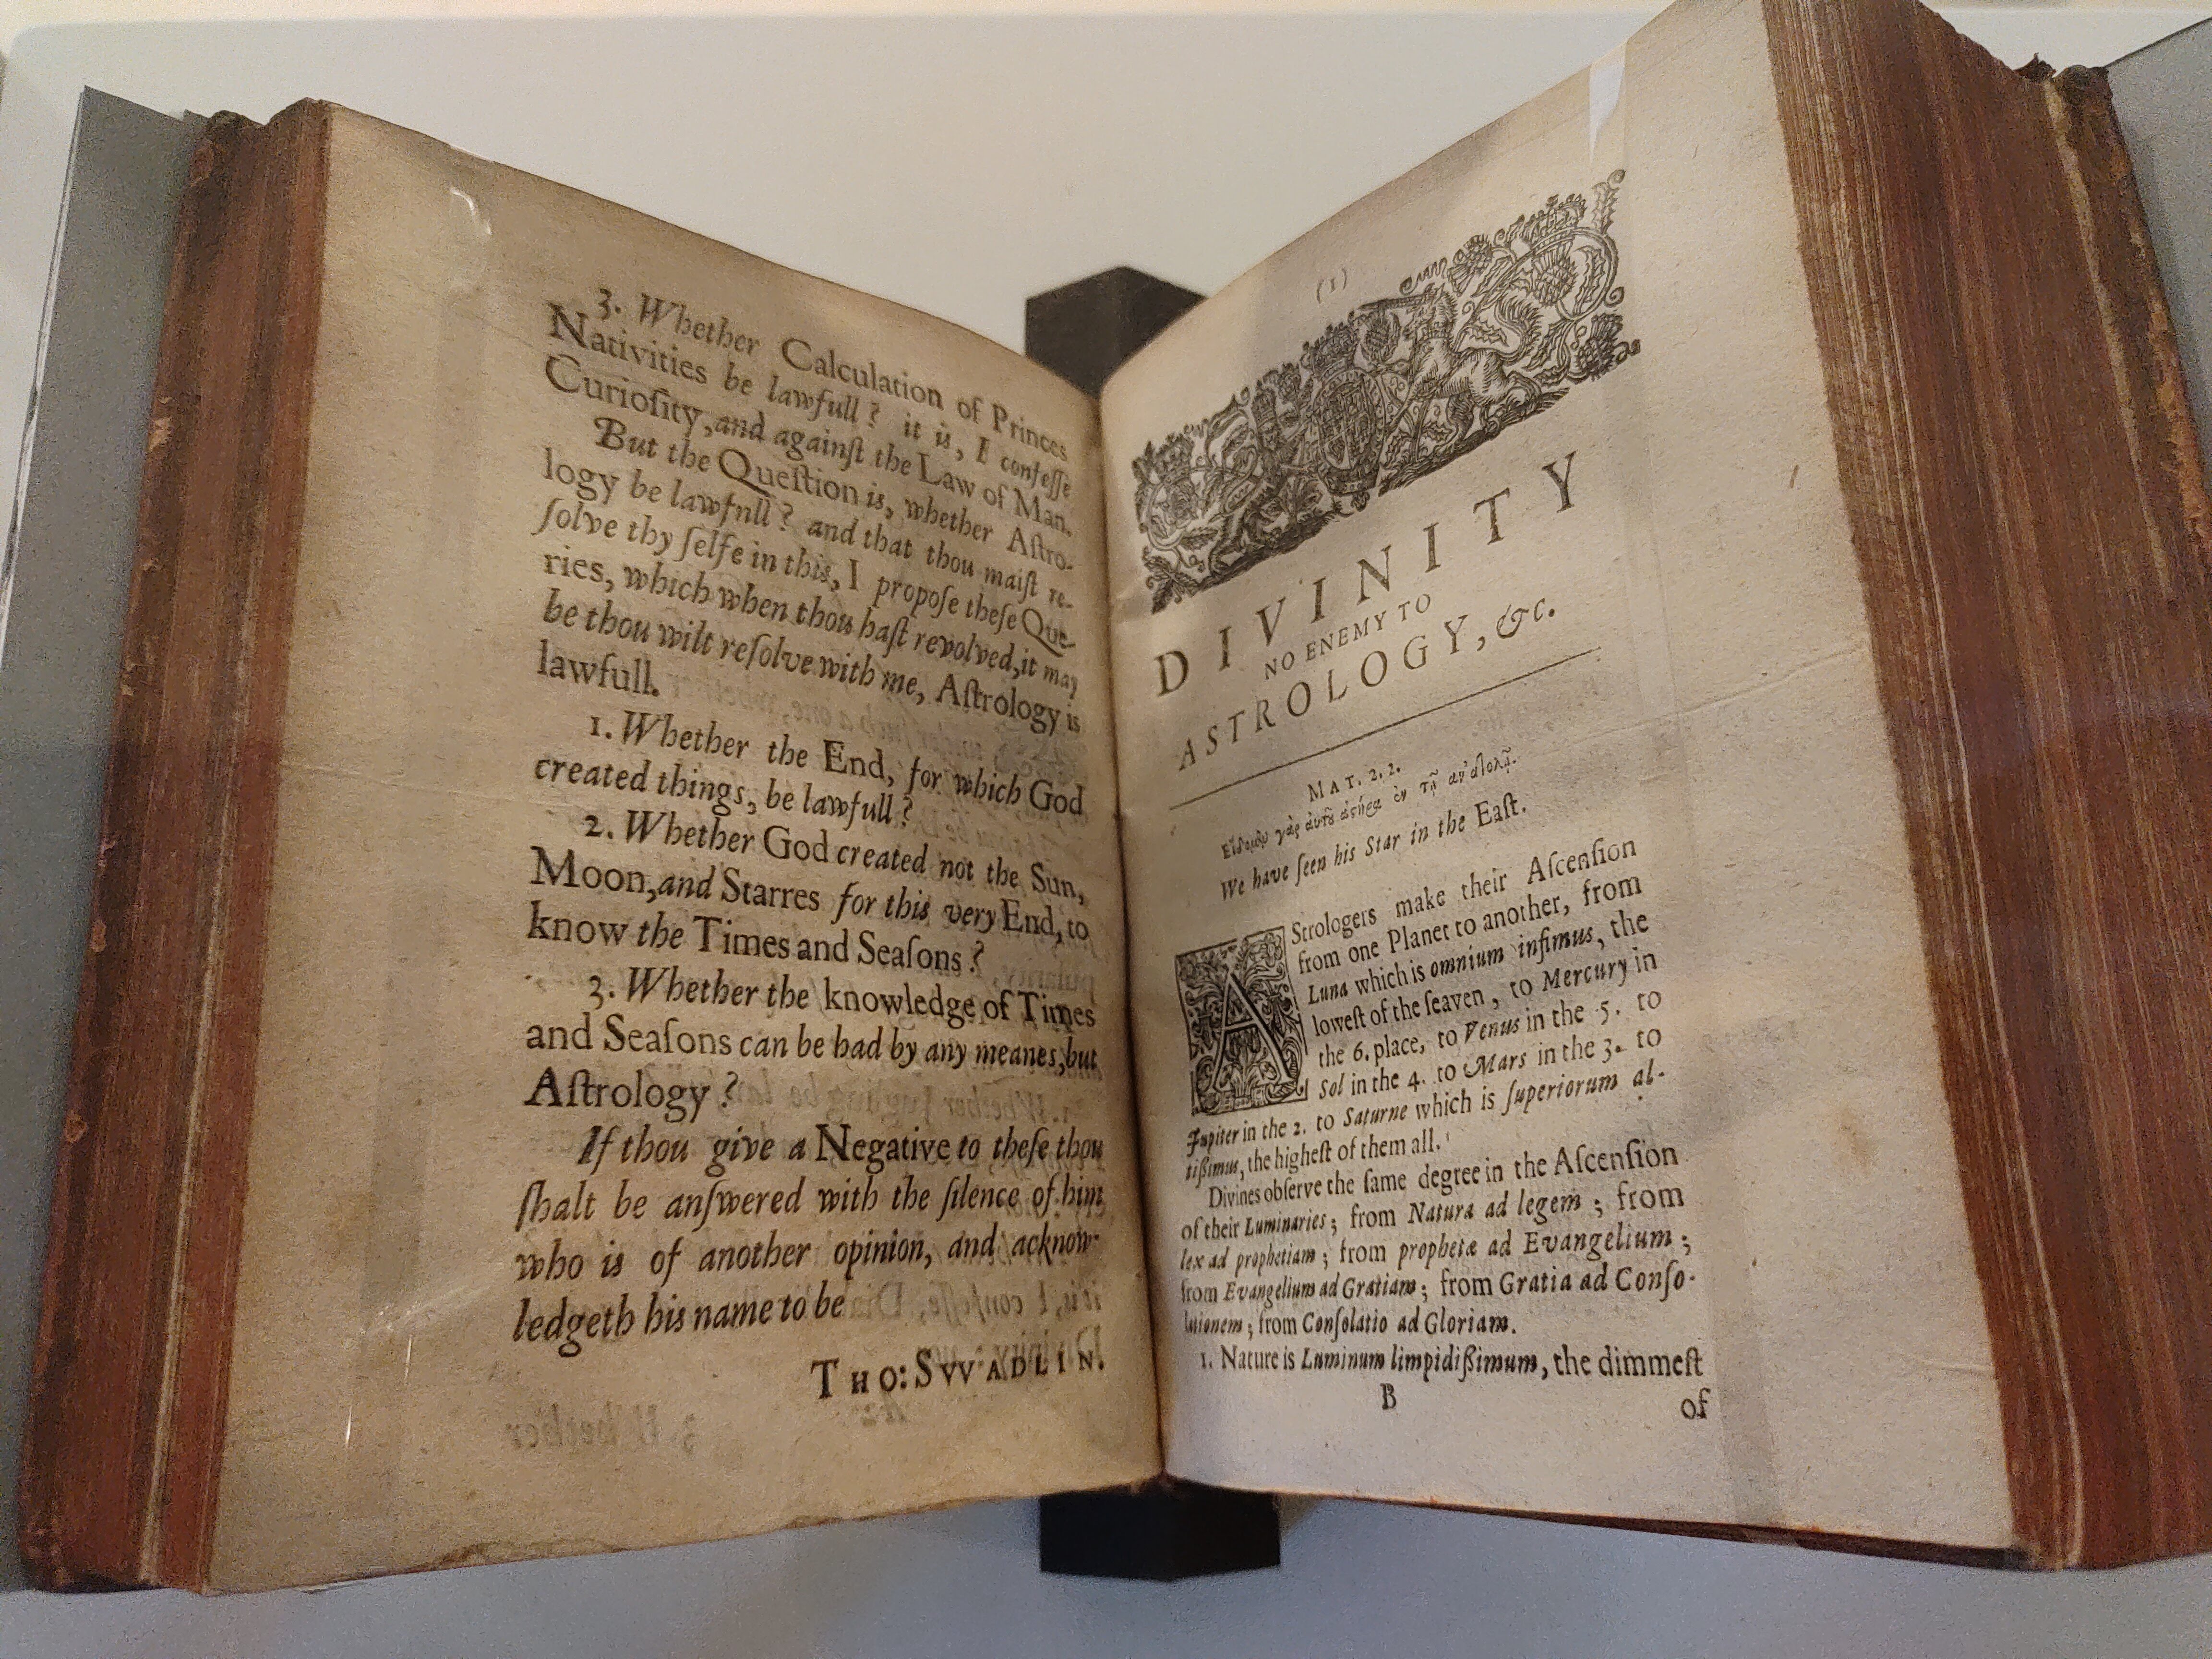 3. Whether Calculation of Princes
Nativities be lawfull? it is, I confeſſe
Curioſity, and againſt the Law of Man.
But the Queſtion is, whether Aſtro-
logy be lawfnll? and that thou maiſt re-
ſolve thy ſelfe in this, I propoſe theſe Que-
ries, which when thou haſt revolved, it may
be thou wilt reſolve with me, Aſtrology is
lawfull.
1. Whether the End, for which God
created things, be lawfull?
2. Whether God created not the Sun,
Moon, and Starres for this very End, to
know the Times and Seaſons?
3. Whether the knowledge of Times
and Seaſons can be had by any meanes, but
Aſtrology?
If thou give a Negative to theſe thou
ſhalt be anſwered with the ſilence of him
who is of another opinion, and acknow-
ledgeth his name to be
THO: SVVADLIN.
(1)
DIVINITY
NO ENEMY TO
ASTROLOGY, &c.
MAT. 2. 2.
γὰρ ἐν τῇ
We have ſeen his Star in the Eaſt.
AStrologers make their Aſcenſion
from one Planet to another, from
Luna which is omnium infimus, the
loweſt of the ſeaven, to Mercury in
the 6. place, to Venus in the 5. to
Sol in the 4. to Mars in the 3. to
Jupiter in the 2. to Saturne which is ſuperiorum al-
tißimus, the higheſt of them all.
Divines obſerve the ſame degree in the Aſcenſion
of their Luminaries; from Natura ad legem; from
lex ad prophetiam; from prophetæ ad Evangelium;
from Evangelium ad Gratiam; from Gratia ad Conſo-
lationem; from Conſolatio ad Gloriam.
1. Nature is Luminum limpidißimum, the dimmeſt
B
of